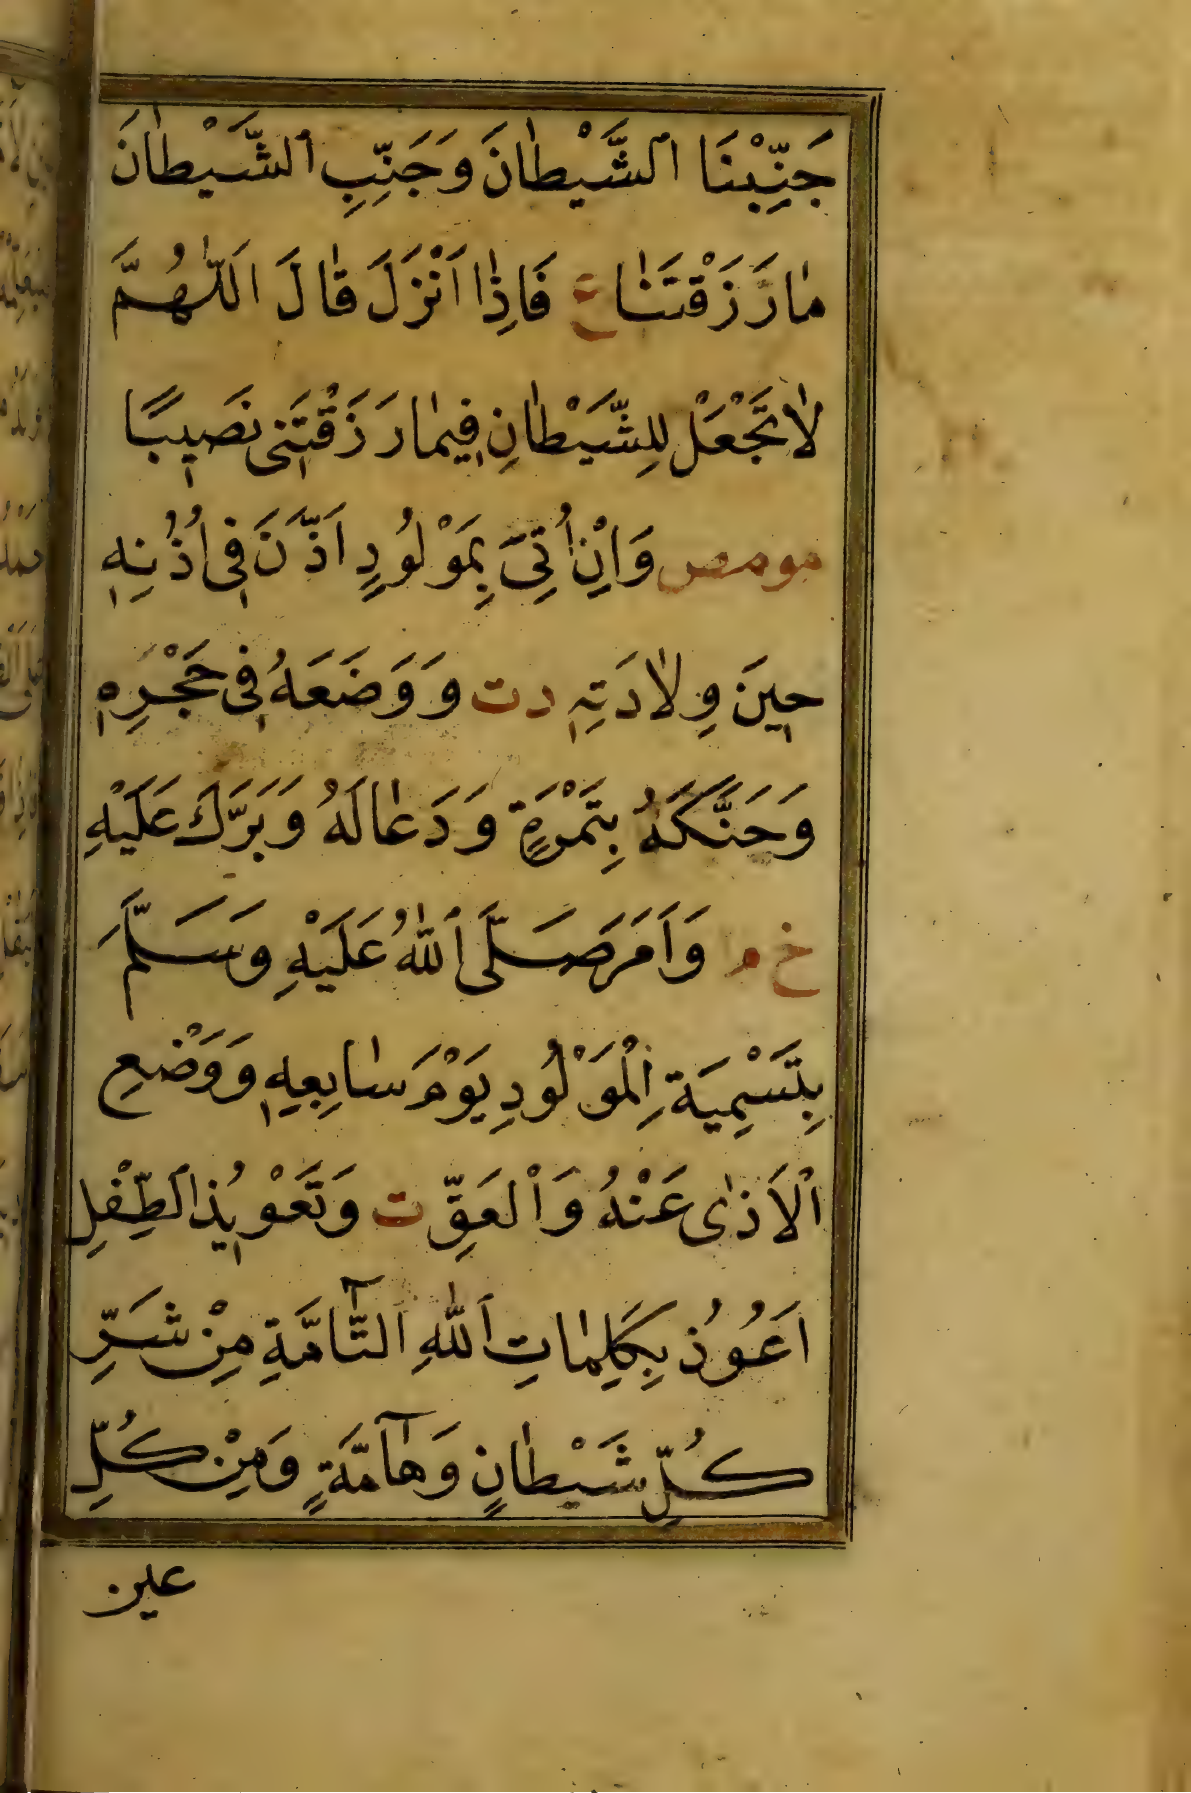 جَنِّبْنَا الشَّيْطَانَ وَجَنِّبِ الشَّيْطَانَ
مَا رَزَقْتَنَا ع فَاِذَا اَنْزَلَ قَالَ اَللّٰهُمَّ
لَا تَجْعَلْ لِلشَّيْطَانِ فِيمَا رَزَقْتَنِى نَصِيبًا
مومص وَاِنْ اُتِىَ بِمَوْلُودٍ اَذَّنَ فِى اُذُنِهِ
حِينَ وِلَادَتِهِ دت وَوَضَعَهُ فِى حَجْرِهِ
وَحَنَّكَهُ بِتَمْرَةٍ وَدَعَا لَهُ وَبَرَّكَ عَلَيْهِ
خ م وَاَمَرَ صَلَّى اللّٰهُ عَلَيْهِ وَسَلَّمَ
بِتَسْمِيَةِ الْمَوْلُودِ يَوْمَ سَابِعِهِ وَوَضْعِ
الْاَذٰى عَنْهُ وَالْعَقِّ ت وَتَعْوِيذِ الطِّفْلِ
اَعُوذُ بِكَلِمَاتِ اللّٰهِ التَّآمَّةِ مِنْ شَرِّ
كُلِّ شَيْطَانٍ وَهَآمَّةٍ وَمِنْ كُلِّ
عين